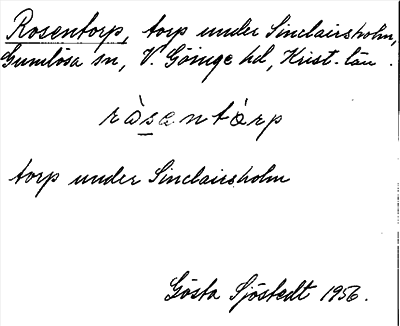 Rosentorp, torp under Sinclairsholm,
Gumlösa sn, V. Göinge hd, Krist. län.
ràsentàrp
torp under Sinclairsholm
Gösta Sjöstedt 1956.